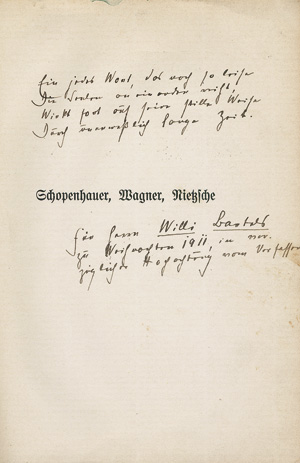 Ein jedes Wort, das noch so leise
Die Seelen an einander reiht,
Wirkt fort auf seine stille Weise
Durch unermeßlich lange Zeit.
Schopenhauer, Wagner, Nietzsche
Für Herrn Willi Bartels
zu Weihnachten 1911, in vor-
züglicher Hochachtung vom Verfasser